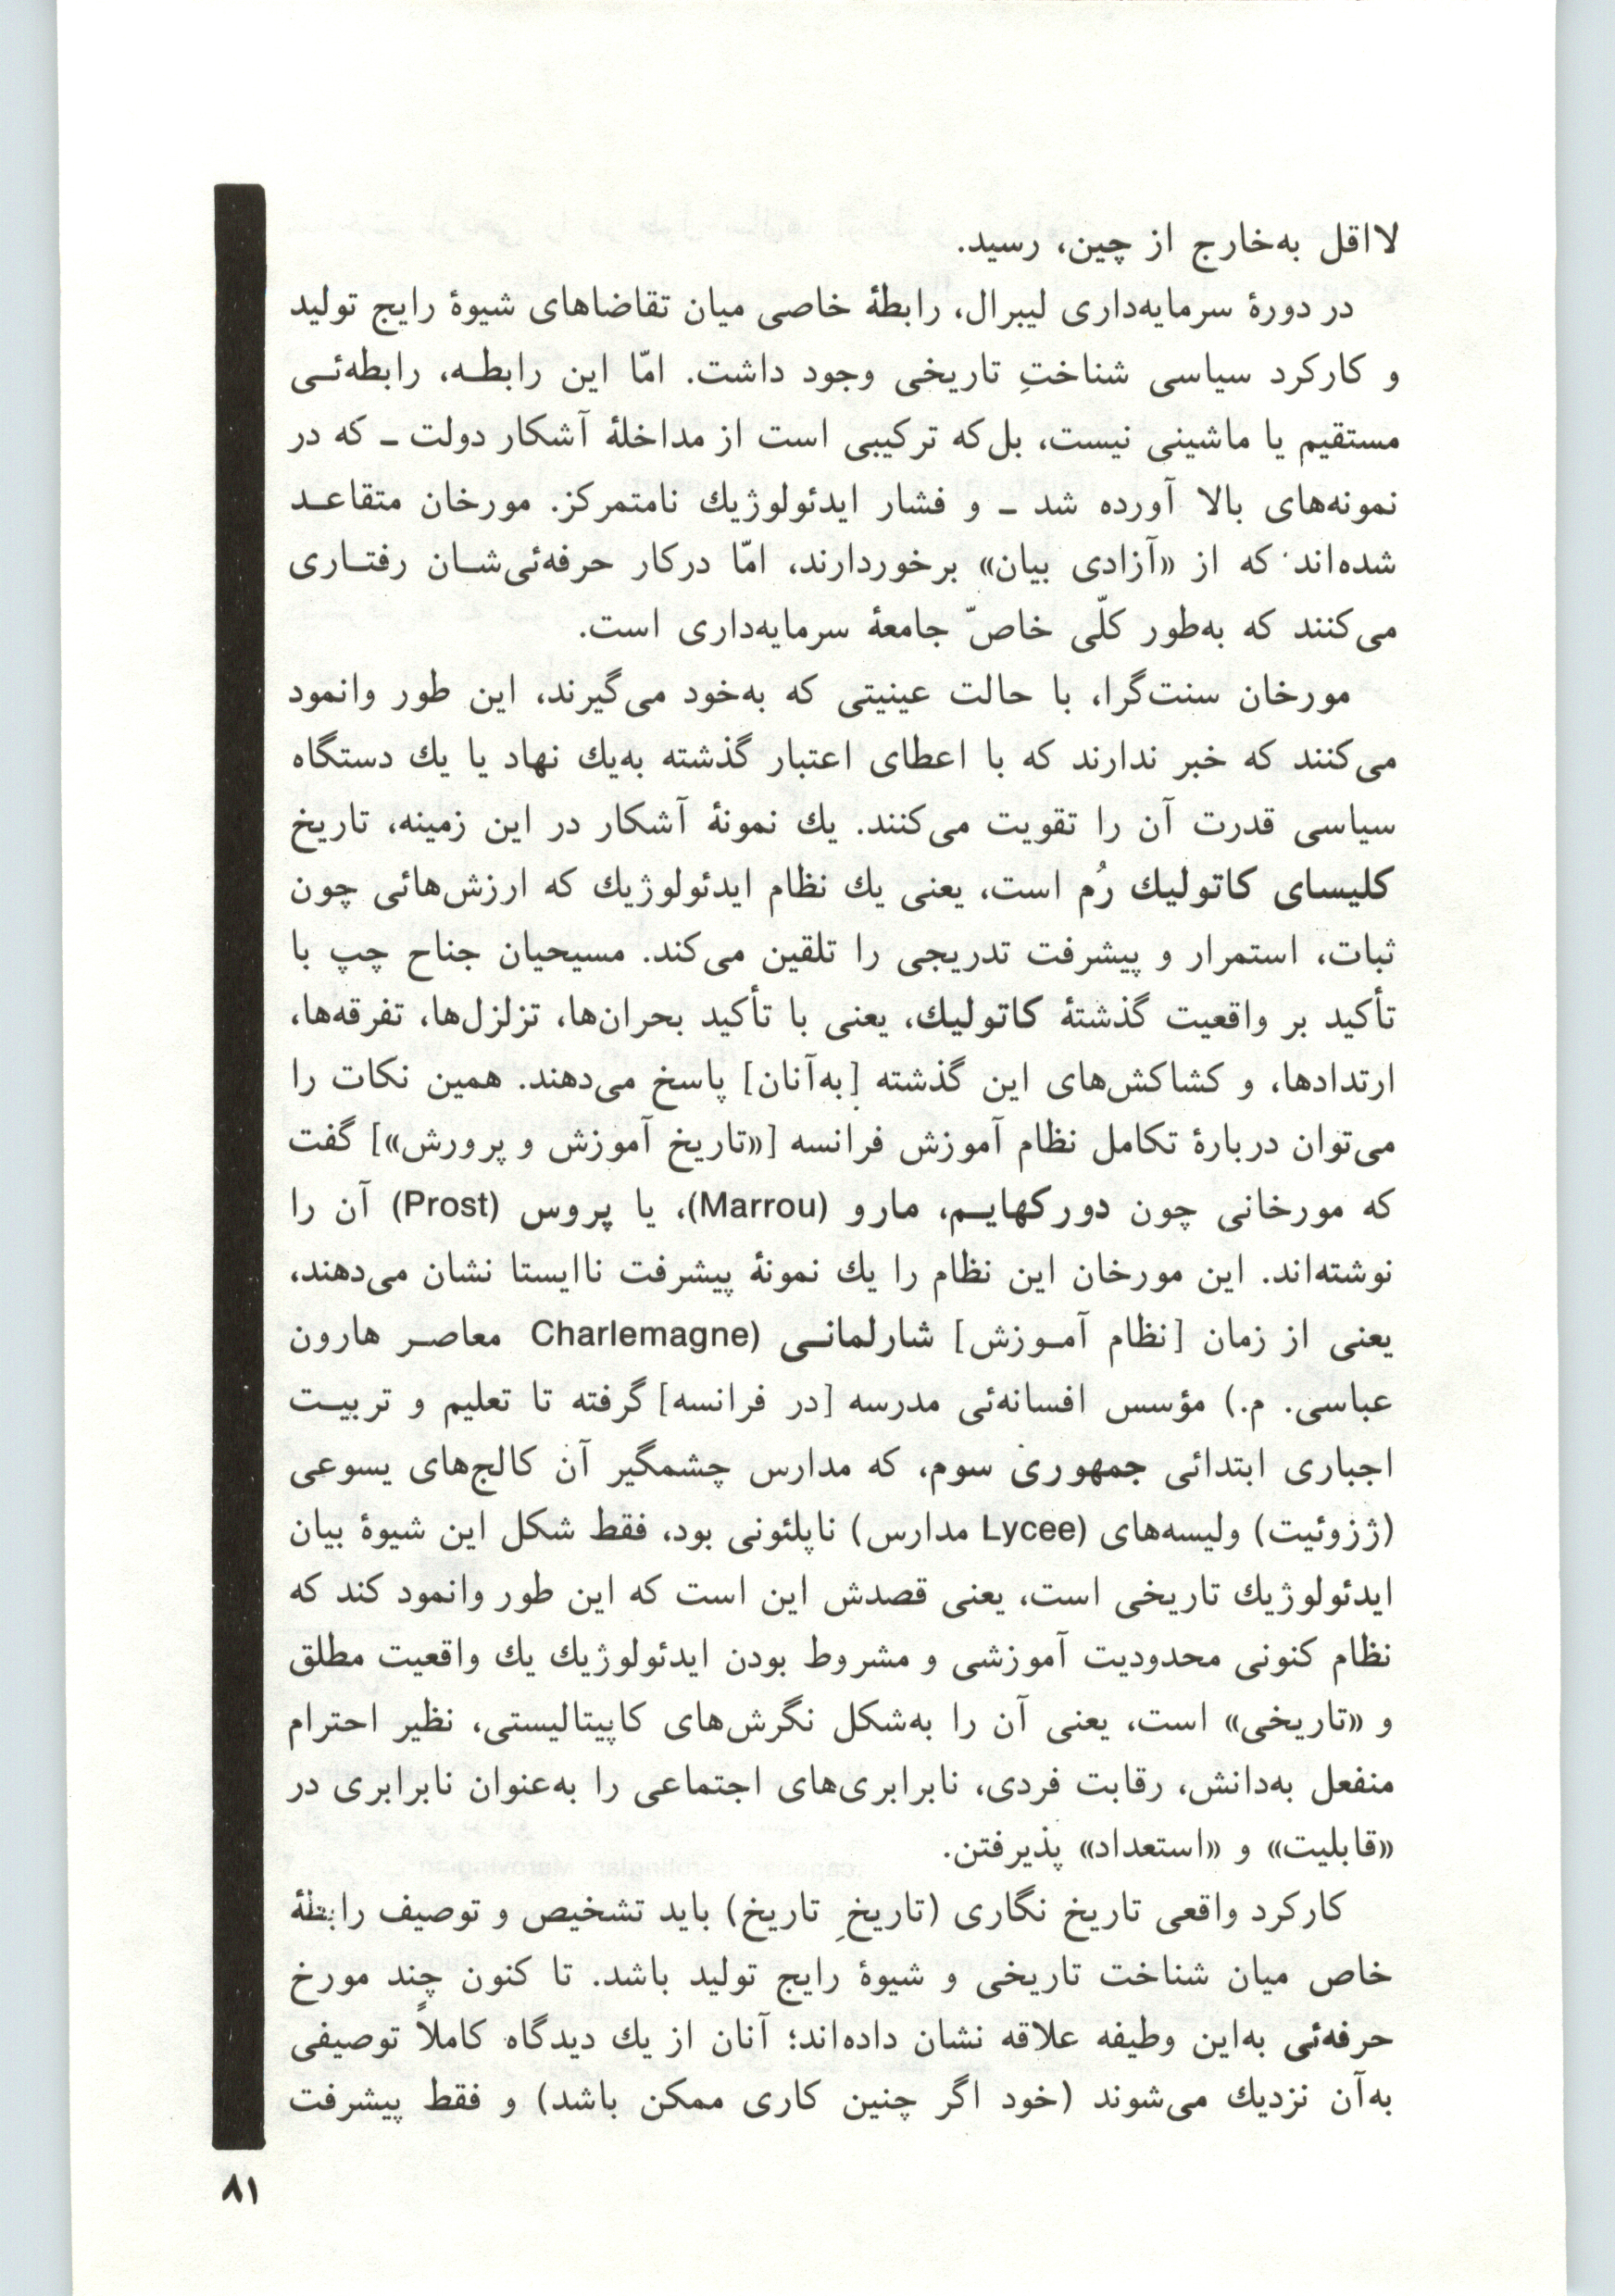 لااقل به‌خارج از چین، رسید.
در دورهٔ سرمایه‌داری لیبرال، رابطهٔ خاصی میان تقاضاهای شیوهٔ رایج تولید
و کارکرد سیاسی شناختِ تاریخی وجود داشت. امّا این رابطـه، رابطه‌ئـی
مستقیم یا ماشینی نیست، بل‌که ترکیبی است از مداخلهٔ آشکار دولت ـ که در
نمونه‌های بالا آورده شد ـ و فشار ایدئولوژیك نامتمرکز. مورخان متقاعـد
شده‌اند که از «آزادی بیان» برخوردارند، امّا درکار حرفه‌ئی‌شـان رفتـاری
می‌کنند که به‌طور کلّی خاصّ جامعهٔ سرمایه‌داری است.
مورخان سنت‌گرا، با حالت عینیتی که به‌خود می‌گیرند، این طور وانمود
می‌کنند که خبر ندارند که با اعطای اعتبار گذشته به‌یك نهاد یا یك دستگاه
سیاسی قدرت آن را تقویت می‌کنند. یك نمونهٔ آشکار در این زمینه، تاریخ
کلیسای کاتولیك رُم است، یعنی یك نظام ایدئولوژیك که ارزش‌هائی چون
ثبات، استمرار و پیشرفت تدریجی را تلقین می‌کند. مسیحیان جناح چپ با
تأکید بر واقعیت گذشتهٔ کاتولیك، یعنی با تأکید بحران‌ها، تزلزل‌ها، تفرقه‌ها،
ارتدادها، و کشاکش‌های این گذشته [به‌آنان] پاسخ می‌دهند. همین نکات را
می‌توان دربارهٔ تکامل نظام آموزش فرانسه [«تاریخ آموزش و پرورش»] گفت
که مورخانی چون دورکهایـم، مارو (Marrou)، یا پروس (Prost) آن را
نوشته‌اند. این مورخان این نظام را یك نمونهٔ پیشرفت ناایستا نشان می‌دهند،
یعنی از زمان [نظام آمـوزش] شارلمانـی (Charlemagne معاصـر هارون
عباسی. م.) مؤسس افسانه‌ئی مدرسه [در فرانسه] گرفته تا تعلیم و تربیـت
اجباری ابتدائی جمهوری سوم، که مدارس چشمگیر آن کالج‌های یسوعی
(ژزوئیت) ولیسه‌های (Lycee مدارس) ناپلئونی بود، فقط شکل این شیوهٔ بیان
ایدئولوژیك تاریخی است، یعنی قصدش این است که این طور وانمود کند که
نظام کنونی محدودیت آموزشی و مشروط بودن ایدئولوژیك یك واقعیت مطلق
و «تاریخی» است، یعنی آن را به‌شکل نگرش‌های کاپیتالیستی، نظیر احترام
منفعل به‌دانش، رقابت فردی، نابرابری‌های اجتماعی را به‌عنوان نابرابری در
«قابلیت» و «استعداد» پذیرفتن.
کارکرد واقعی تاریخ نگاری (تاریخِ تاریخ) باید تشخیص و توصیف رابطهٔ
خاص میان شناخت تاریخی و شیوهٔ رایج تولید باشد. تا کنون چند مورخ
حرفه‌ئی به‌این وظیفه علاقه نشان داده‌اند؛ آنان از یك دیدگاه کاملاً توصیفی
به‌آن نزدیك می‌شوند (خود اگر چنین کاری ممکن باشد) و فقط پیشرفت
۸۱